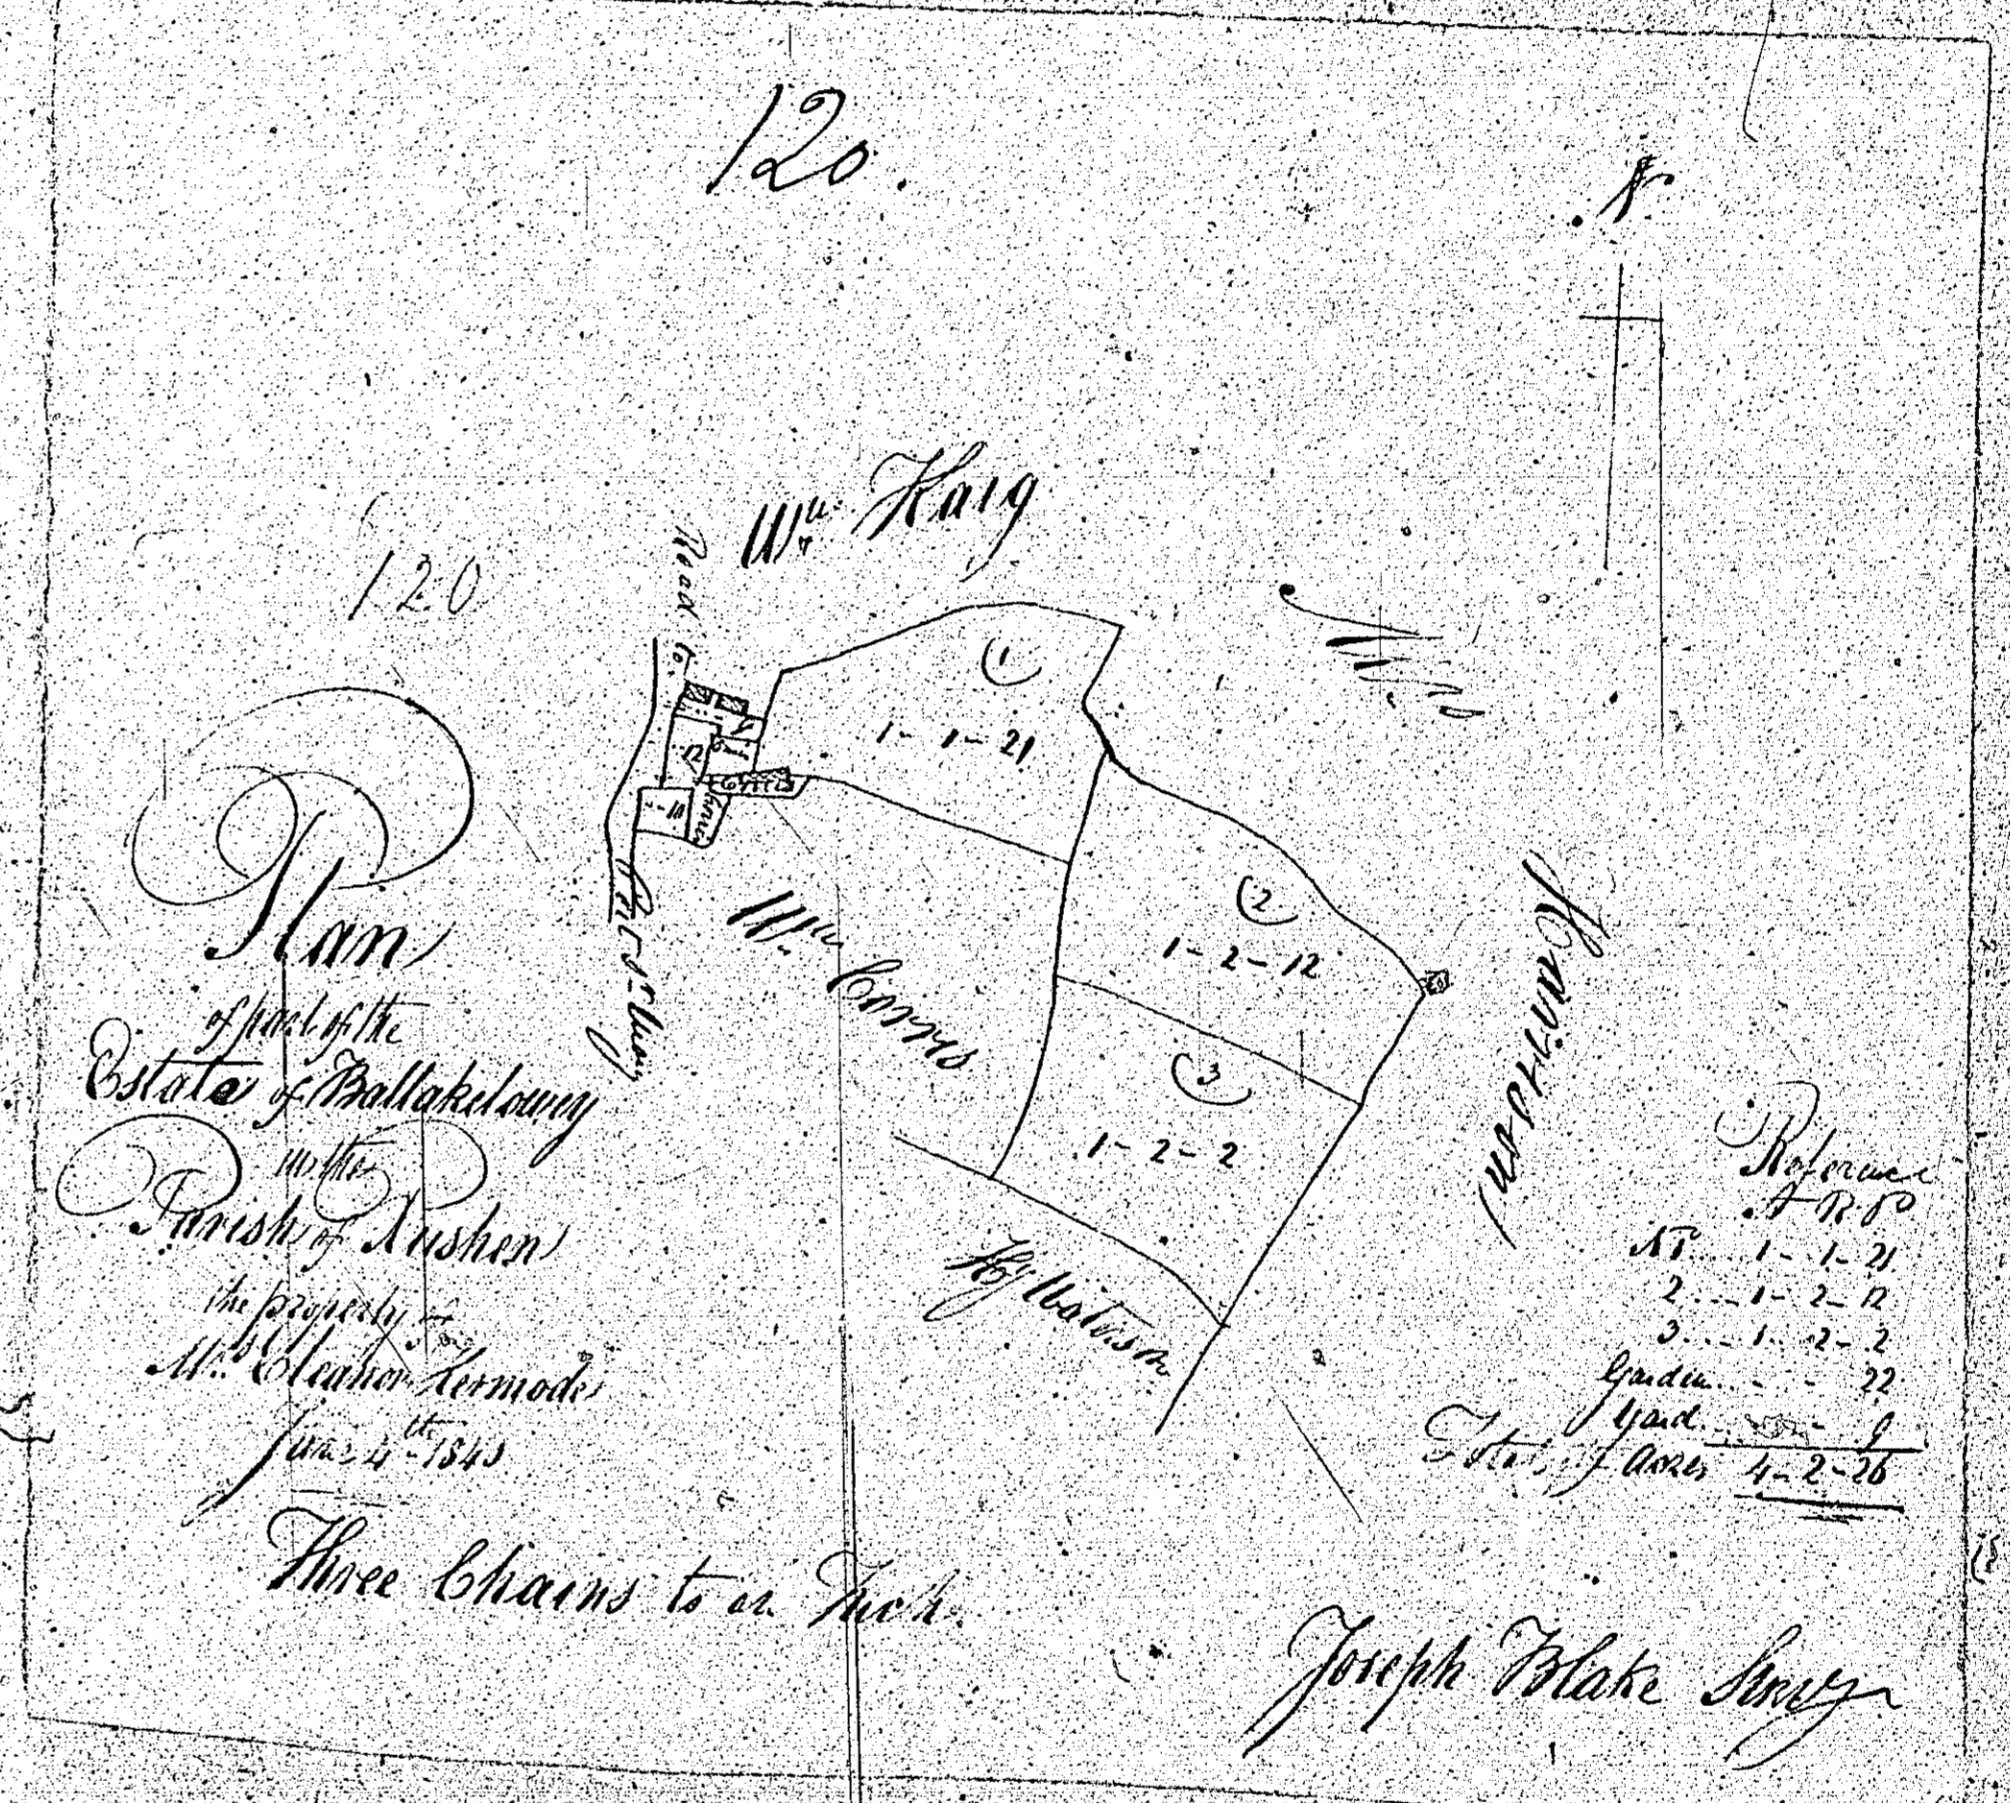 120.
N
120
Wm Haig
Road to
Port St Mary
1
1-1-21
12
10
Wm Corris
2
1-2-12
3
1-2-2
Hy Waterson
Plan
of part of the
Estate of Ballakelowey
in the
Parish of Rushen
the property of
Mrs Eleanor Kermode
June 4th 184
Three Chains to an Inch.
Reference
A R P
No 1 - 1 - 21
2 .. 1 - 2 - 12
3 .. 1 - 2 - 2
Garden .. - - 22
Yard .. - 9
Total of Acres 4-2-26
Joseph Blake Survyr